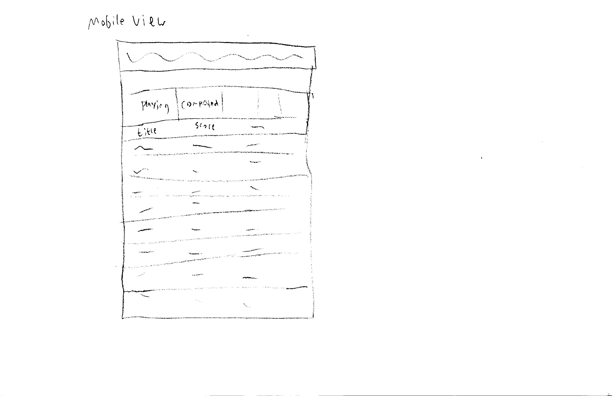 Mobile View
playing completed
title score